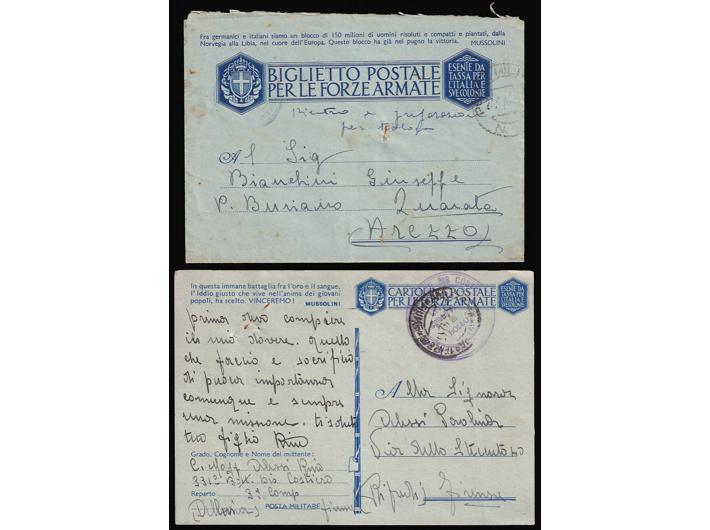 Fra germanici e italiani siamo un blocco di 150 milioni di uomini risoluti e compatti e piantati, dalla
Norvegia alla Libia, nel cuore dell'Europa. Questo blocco ha già nel pugno la vittoria. MUSSOLINI
BIGLIETTO POSTALE
PER LE FORZE ARMATE
ESENTE DA
TASSA PER
L'ITALIA E
SUE COLONIE
Al Sig
Bianchini Giuseppe
P. Buriano Quarata
AREZZO
In questa immane battaglia fra l'oro e il sangue,
l'Iddio giusto che vive nell'anima dei giovani
popoli, ha scelto. VINCEREMO! MUSSOLINI
CARTOLINA POSTALE
PER LE FORZE ARMATE
ESENTE DA
TASSA PER
L'ITALIA E
SUE COLONIE
prima devo compiere
il mio dovere. quello
che faccio e sacrificio
di poca importanza
comunque e sempre
una missione. ti saluta
tuo figlio Rino
Grado, Cognome e Nome del mittente:
Alessi Rino
331°
Costiero
Reparto 3ª Comp
POSTA MILITARE
Alla Signora
Alessi Paolina
Via dello Steccuto 40
Rifredi Firenze